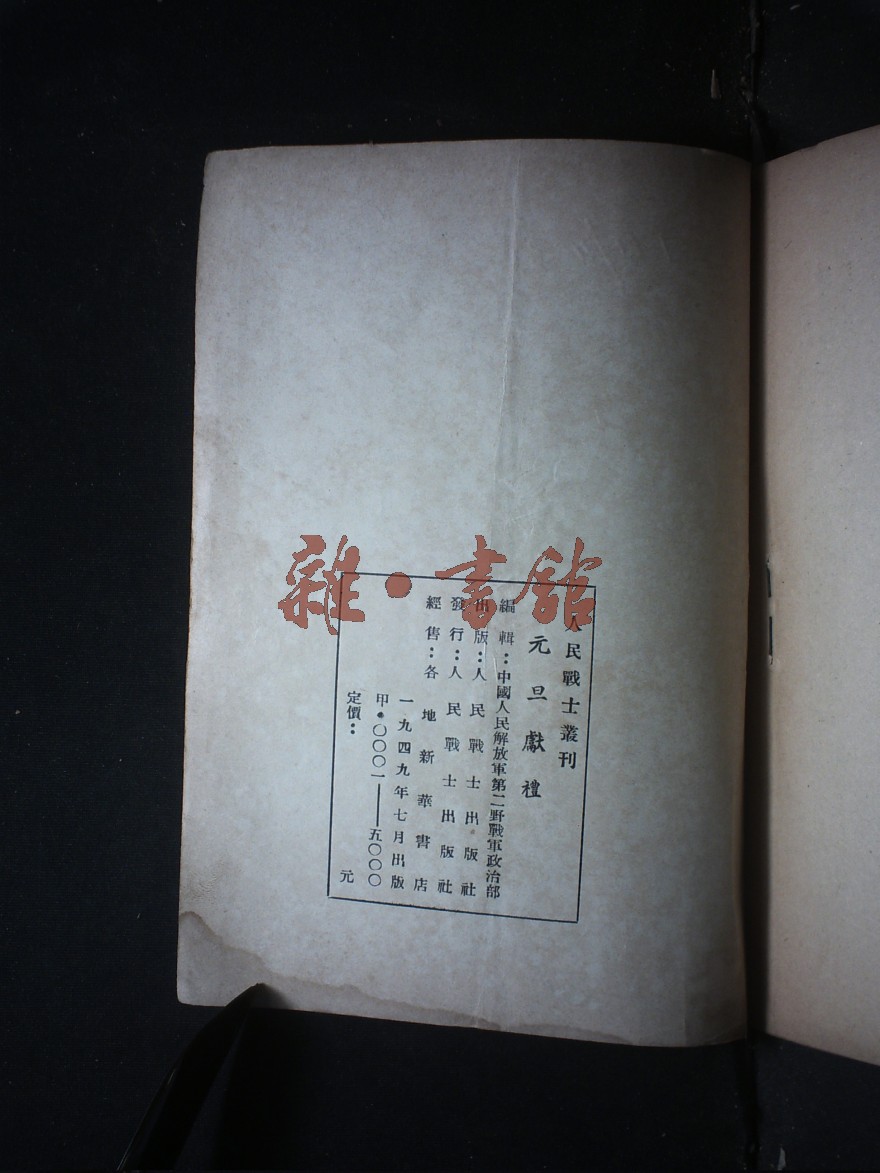 雜·書館
人民戰士叢刊
元旦獻禮
編輯：中國人民解放軍第二野戰軍政治部
出版：人民戰士出版社
發行：人民戰士出版社
經售：各地新華書店
一九四九年七月出版
甲·〇〇〇一——五〇〇〇
定價： 元